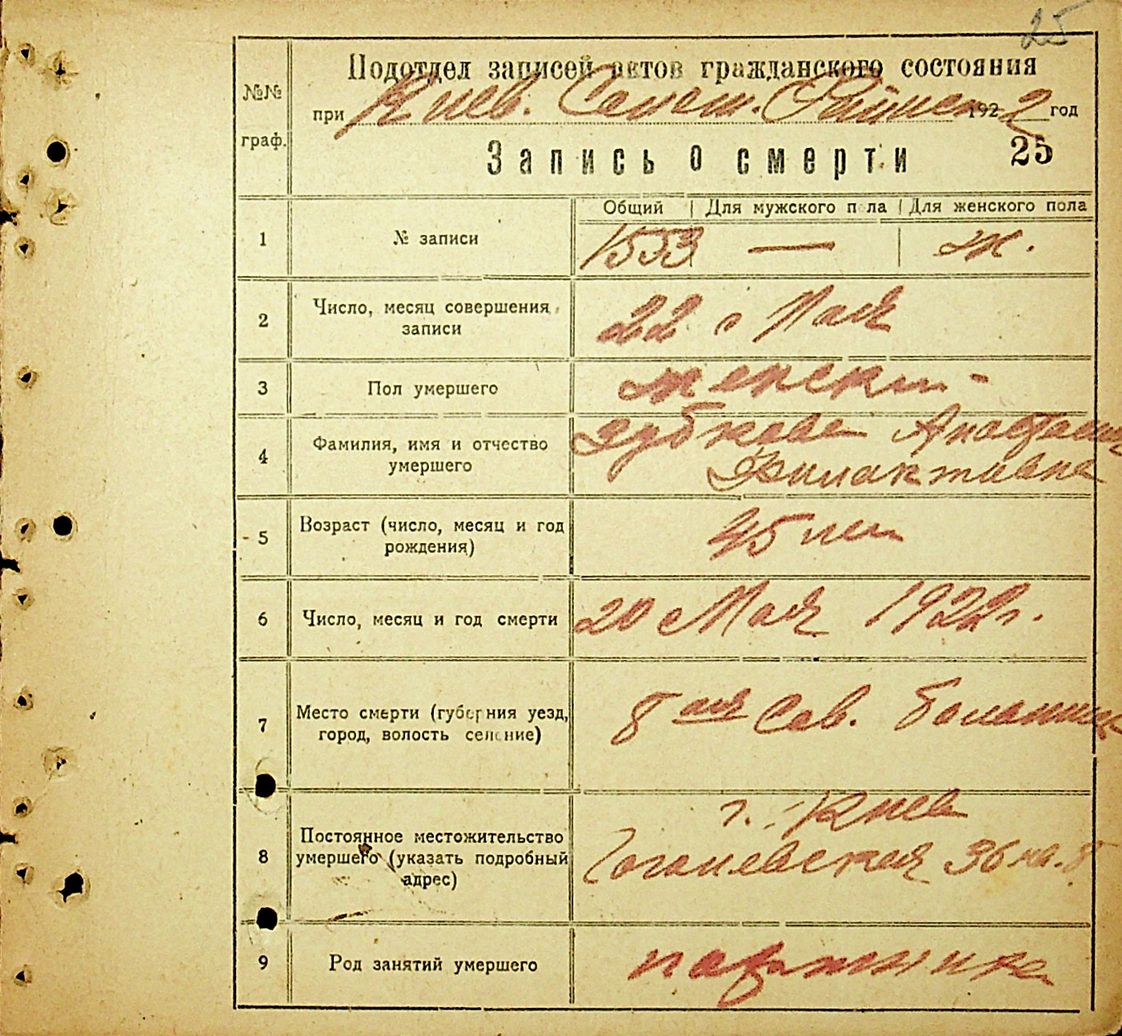 25
Подотдел записей актов гражданского состояния
№№ граф.
при Киев. 1922 год
Запись о смерти 25
Общий | Для мужского пола | Для женского пола
1 № записи 1553 — ж.
2 Число, месяц совершения записи 22 Мая
3 Пол умершего женски-
4 Фамилия, имя и отчество умершего Зубкова
Филактивна
5 Возраст (число, месяц и год рождения) 45 лет
6 Число, месяц и год смерти 20 Мая 1922г.
7 Место смерти (губерния уезд, город, волость селение) 8ая Сов. больниц
8 Постоянное местожительство умершего (указать подробный адрес) г. Киев
Гоголевская 36 кв. 8
9 Род занятий умершего